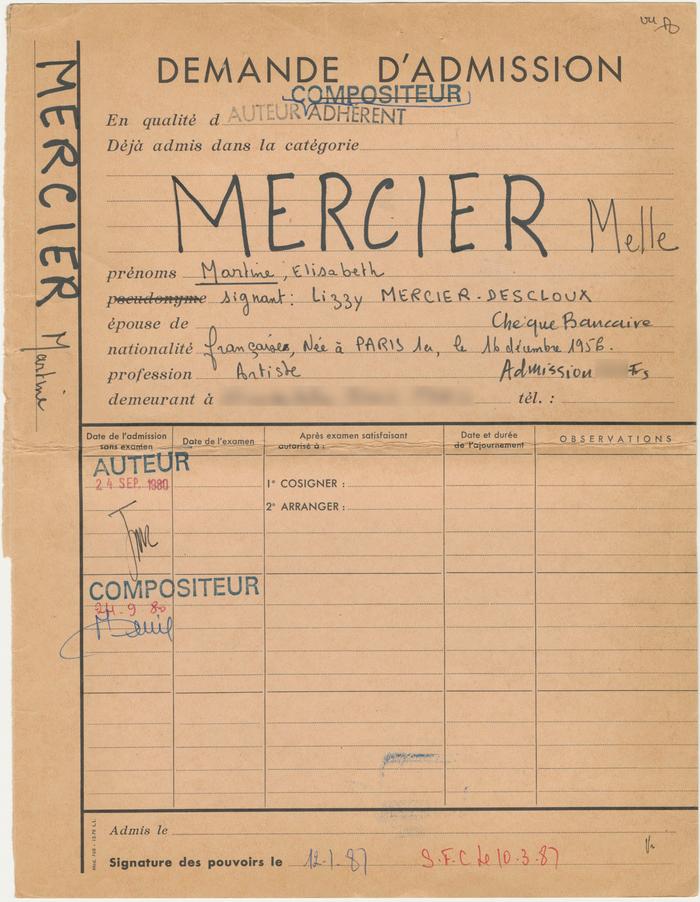 DEMANDE D'ADMISSION
COMPOSITEUR
En qualité d AUTEUR ADHÉRENT
Déjà admis dans la catégorie
MERCIER Melle
prénoms Martine, Elisabeth
pseudonyme signant: Lizzy MERCIER-DESCLOUX
épouse de Chèque Bancaire
nationalité française, Née à PARIS 1er, le 16 décembre 1956.
profession Artiste Admission Frs
demeurant à tél. :
MERCIER Martine
Date de l'admission sans examen
Date de l'examen
Après examen satisfaisant autorisé à :
Date et durée de l'ajournement
OBSERVATIONS
AUTEUR
24 SEP. 1980
1° COSIGNER :
2° ARRANGER :
COMPOSITEUR
24.9 80
Admis le
Signature des pouvoirs le 12.1.87 S.F.C le 10.3.87